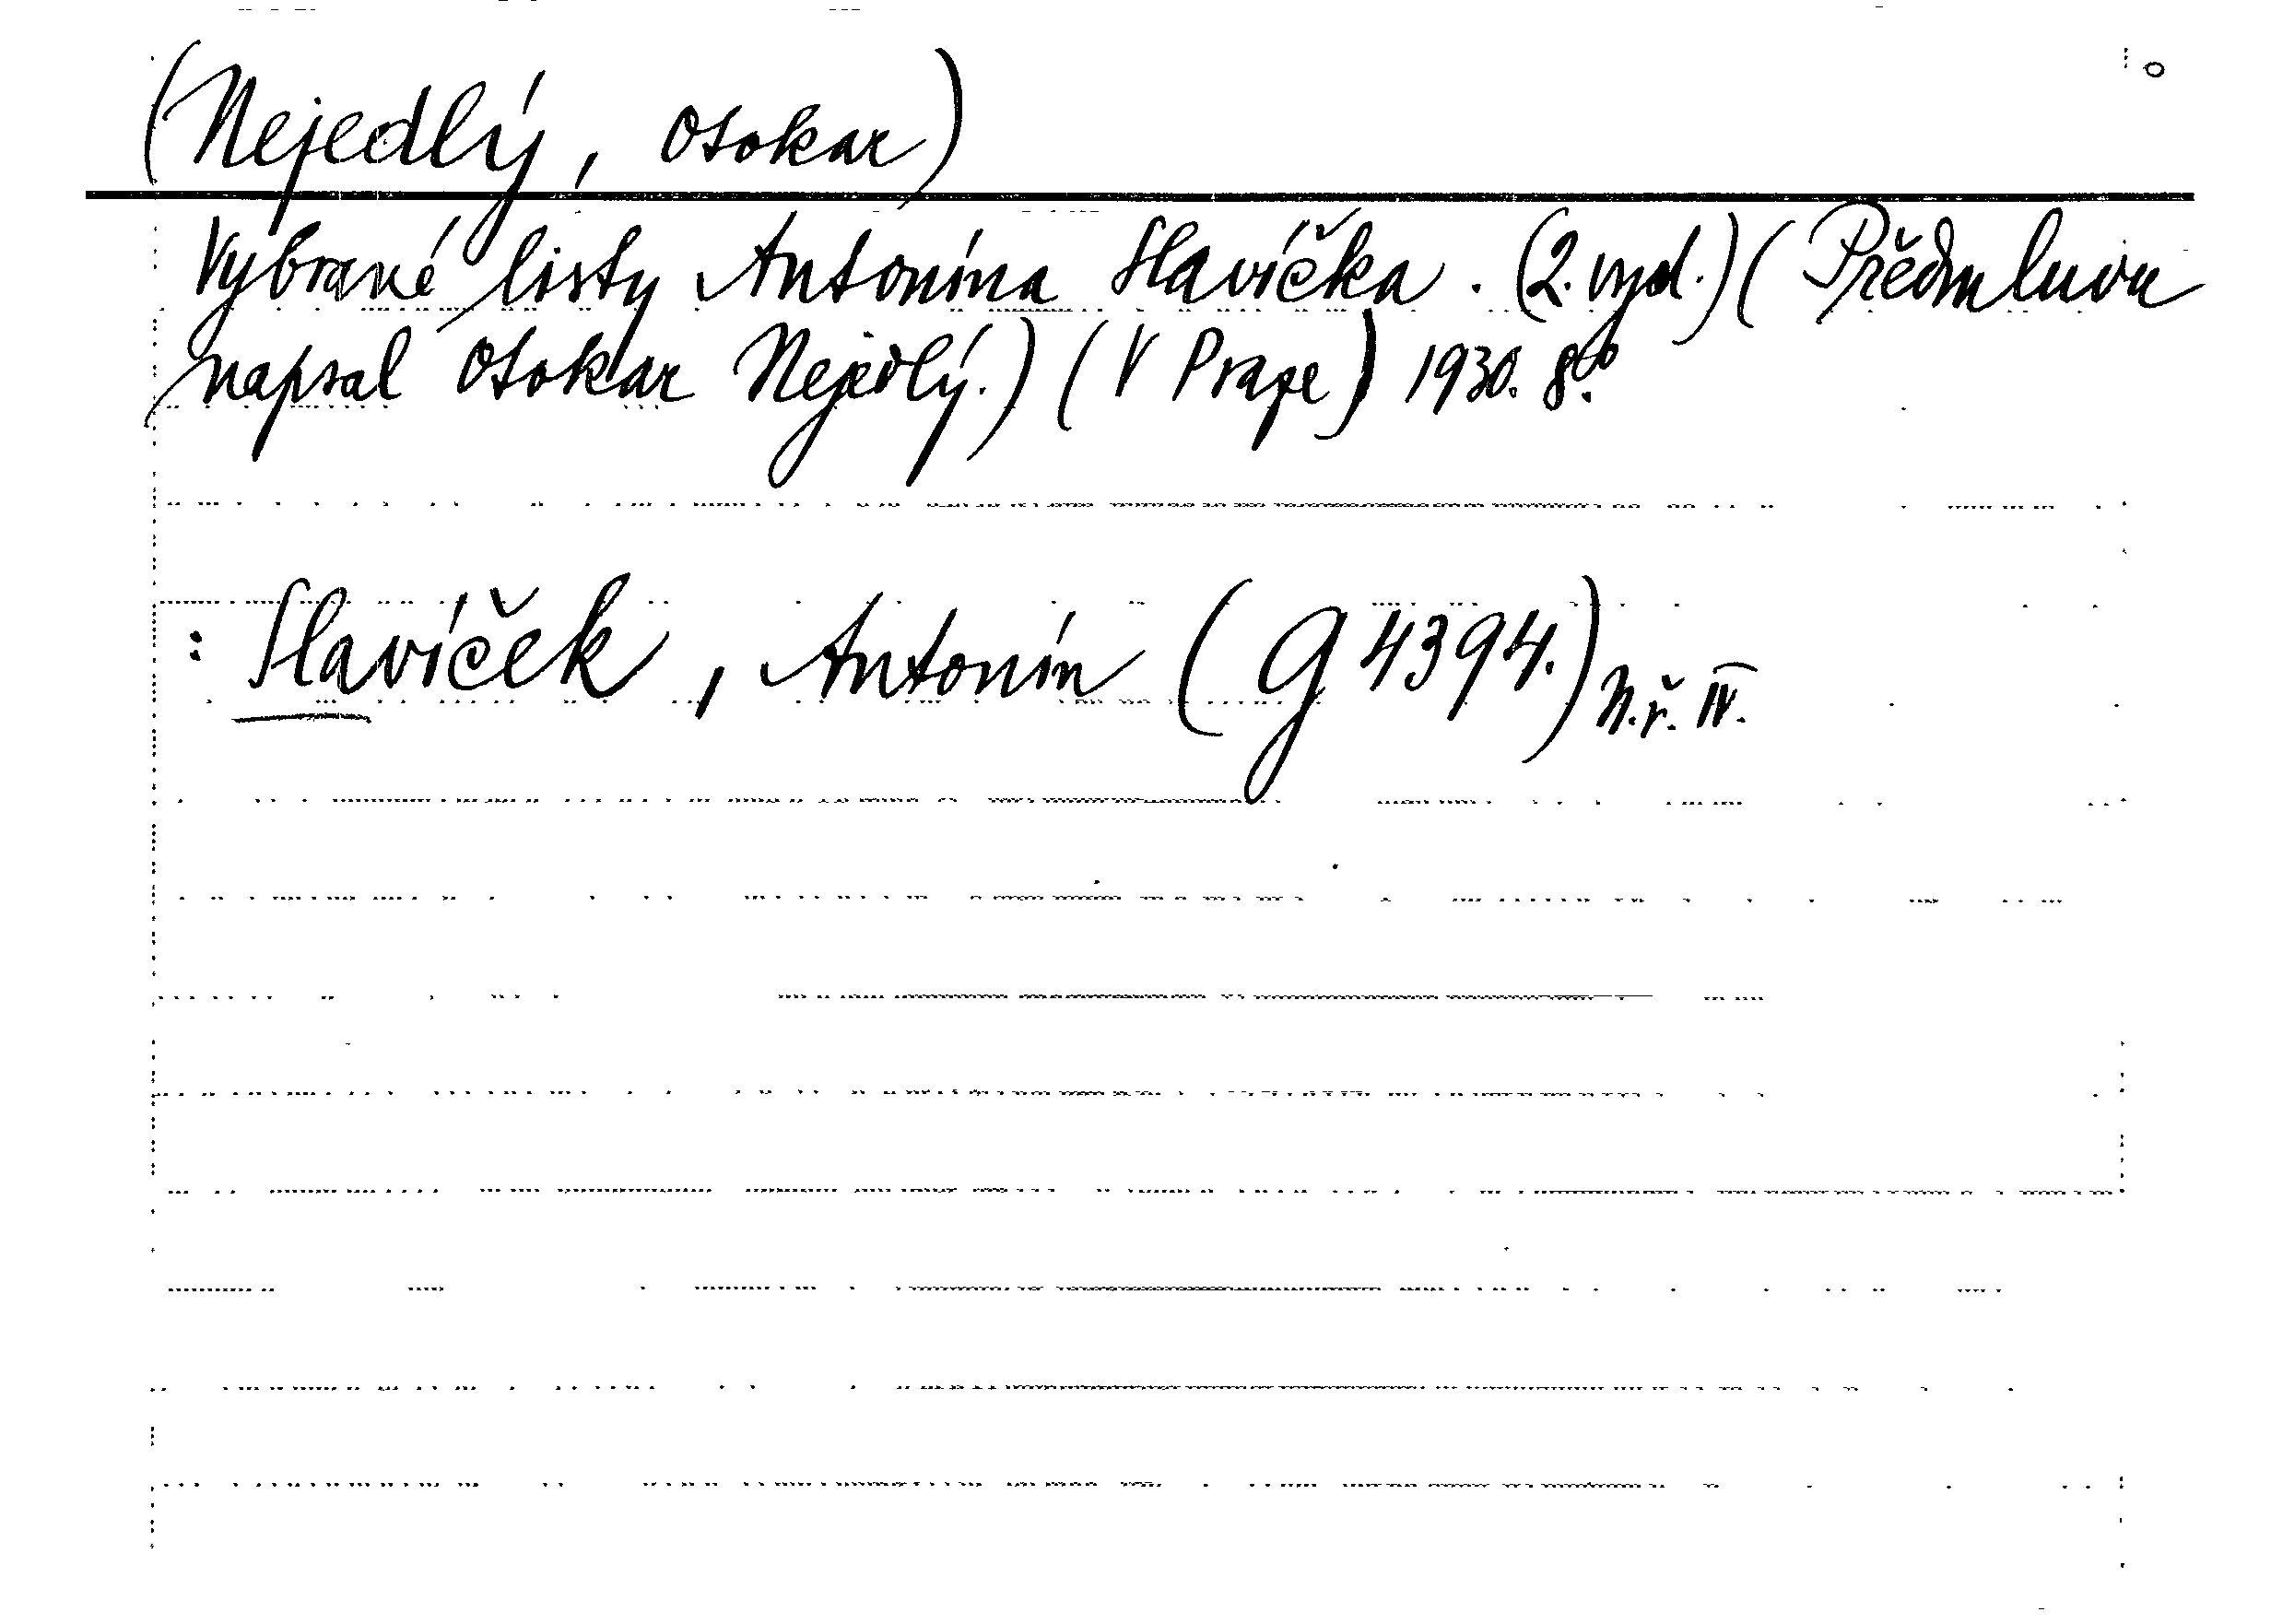 (Nejedlý, Otokar)
Vybrané listy Antonína Slavíčka. (2. vyd.) (Předmluvu
napsal Otokar Nejedlý.) (V Praze) 1930. 8°.
: Slavíček, Antonín (G 4394.) N.ř. IV.